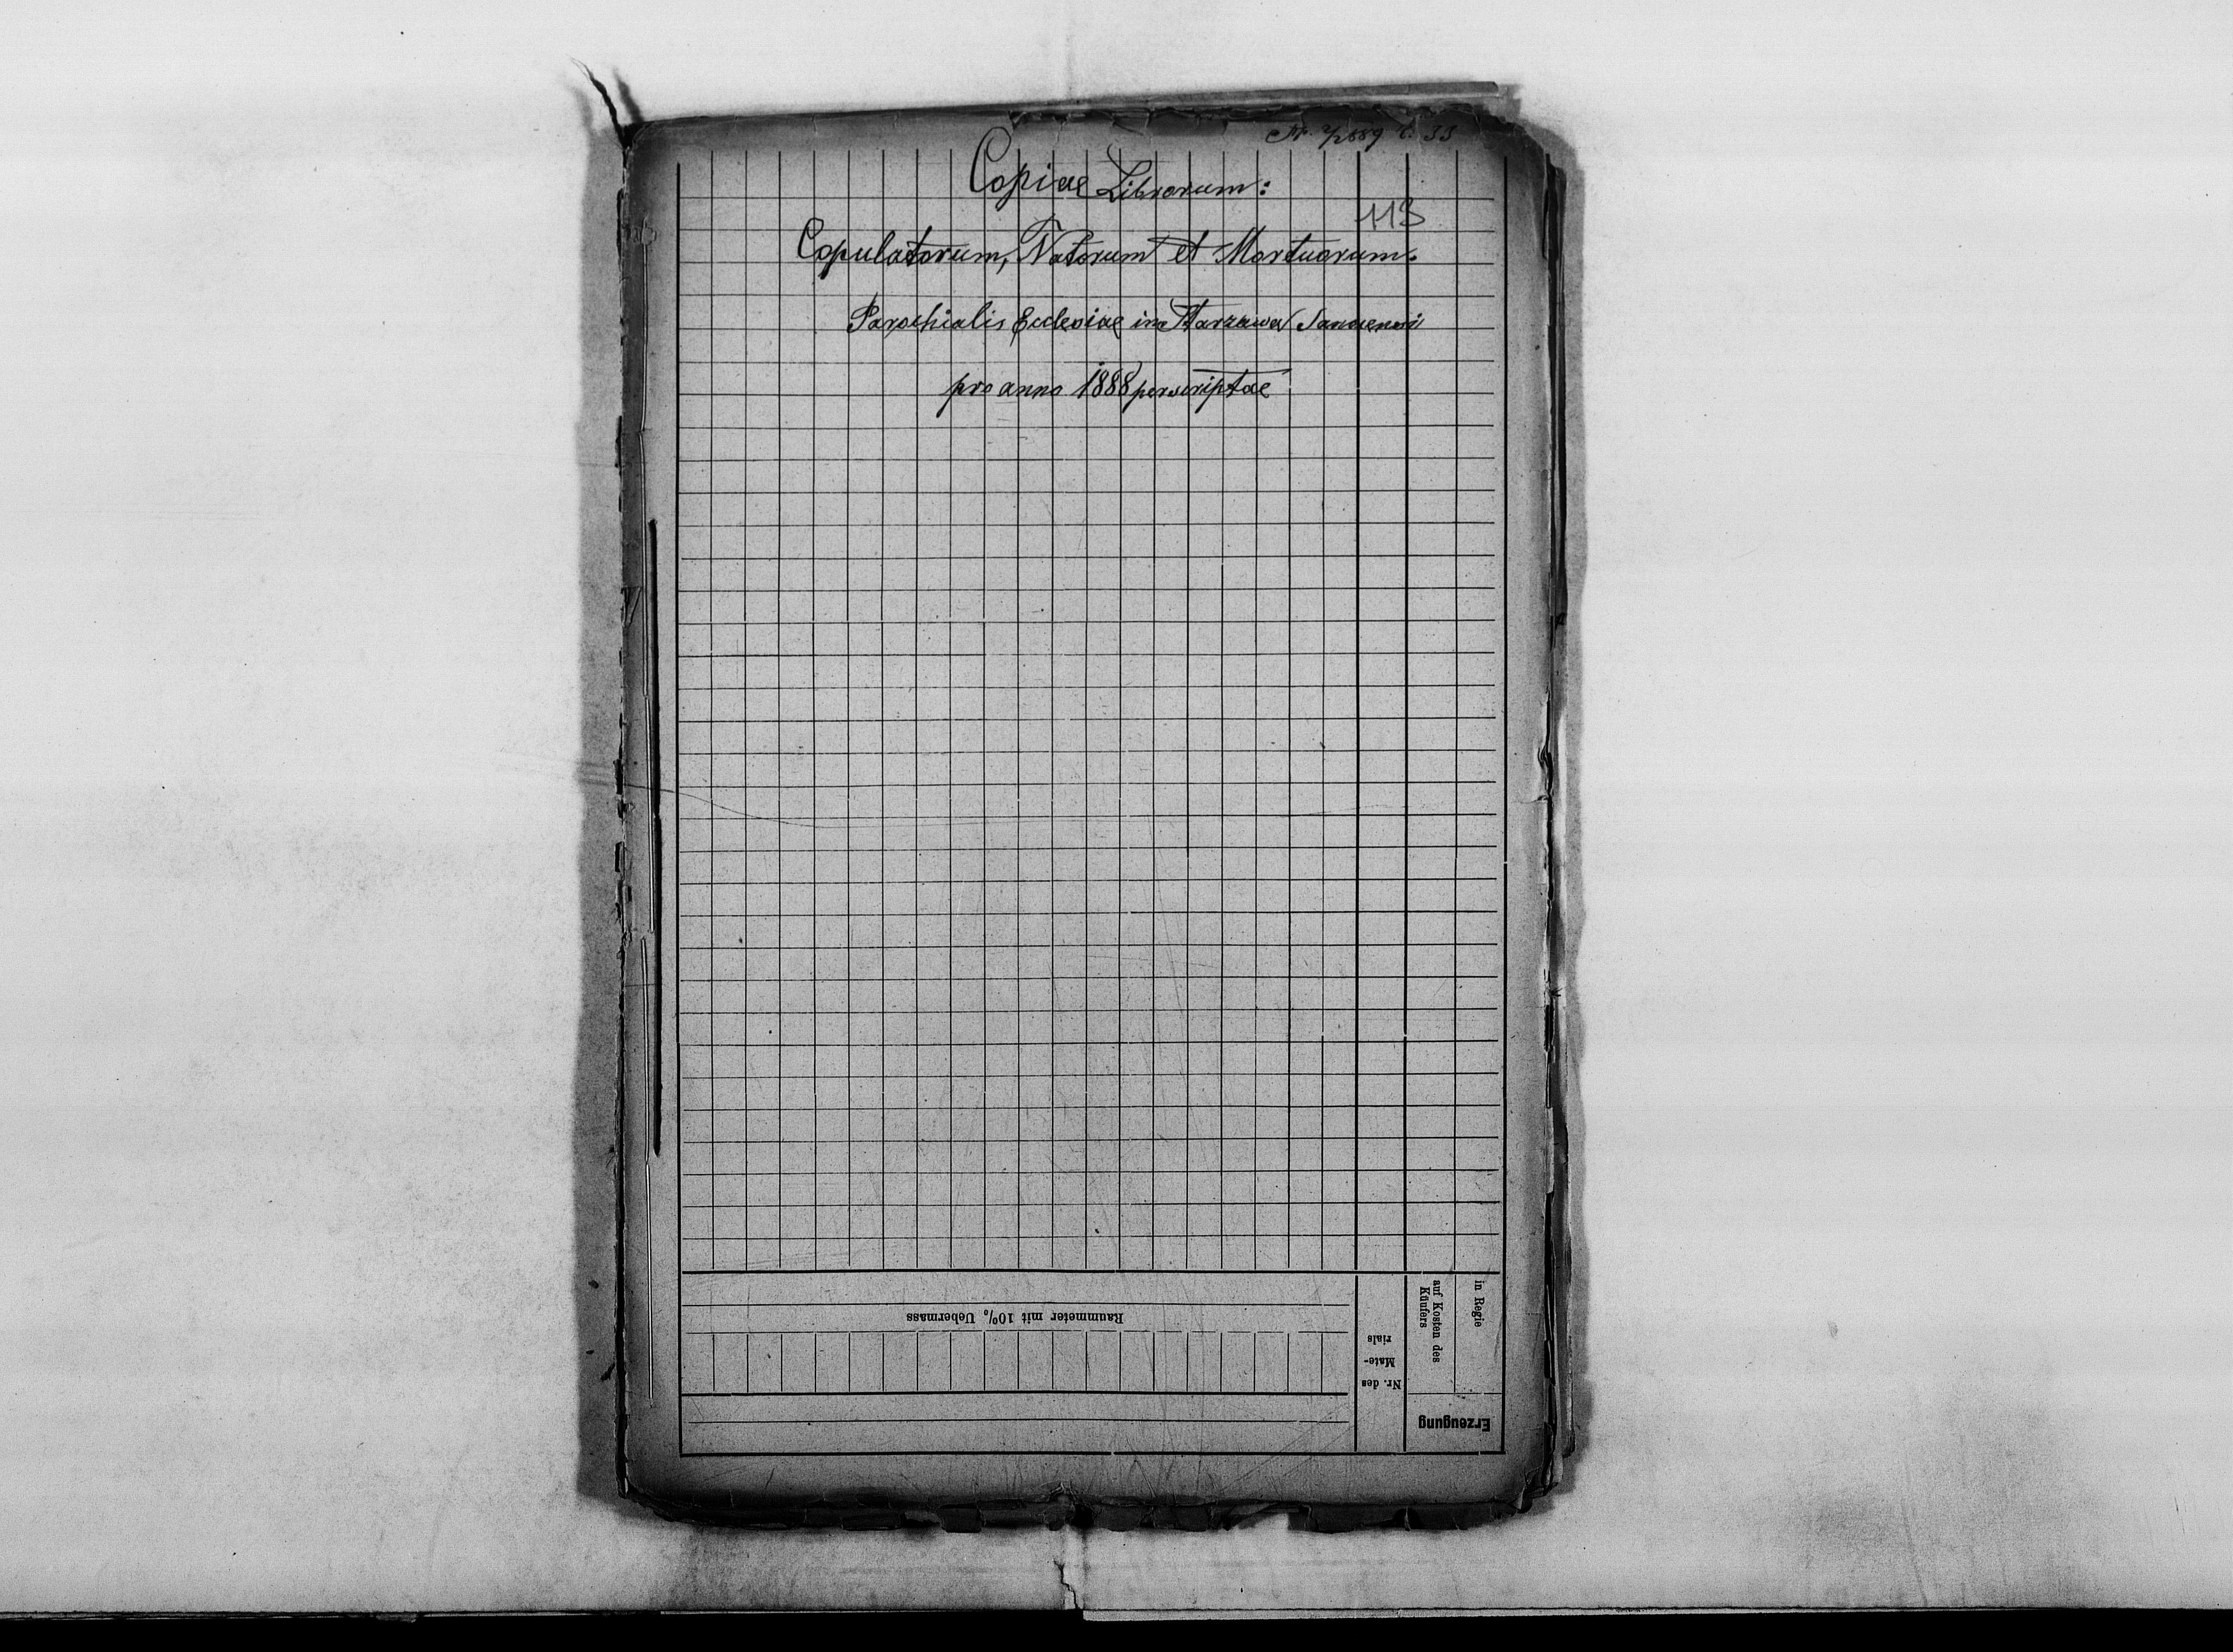 Copiae Librorum:
113
Copulatorum, Natorum et Mortuorum.
Parochialis Ecclesiae in Tarzawa
pro anno 1888 perscriptae
Raummeter mit 10% Uebermass
Nr. des
Mate-
rials
auf Kosten des
Käufers
in Regie
Erzeugung